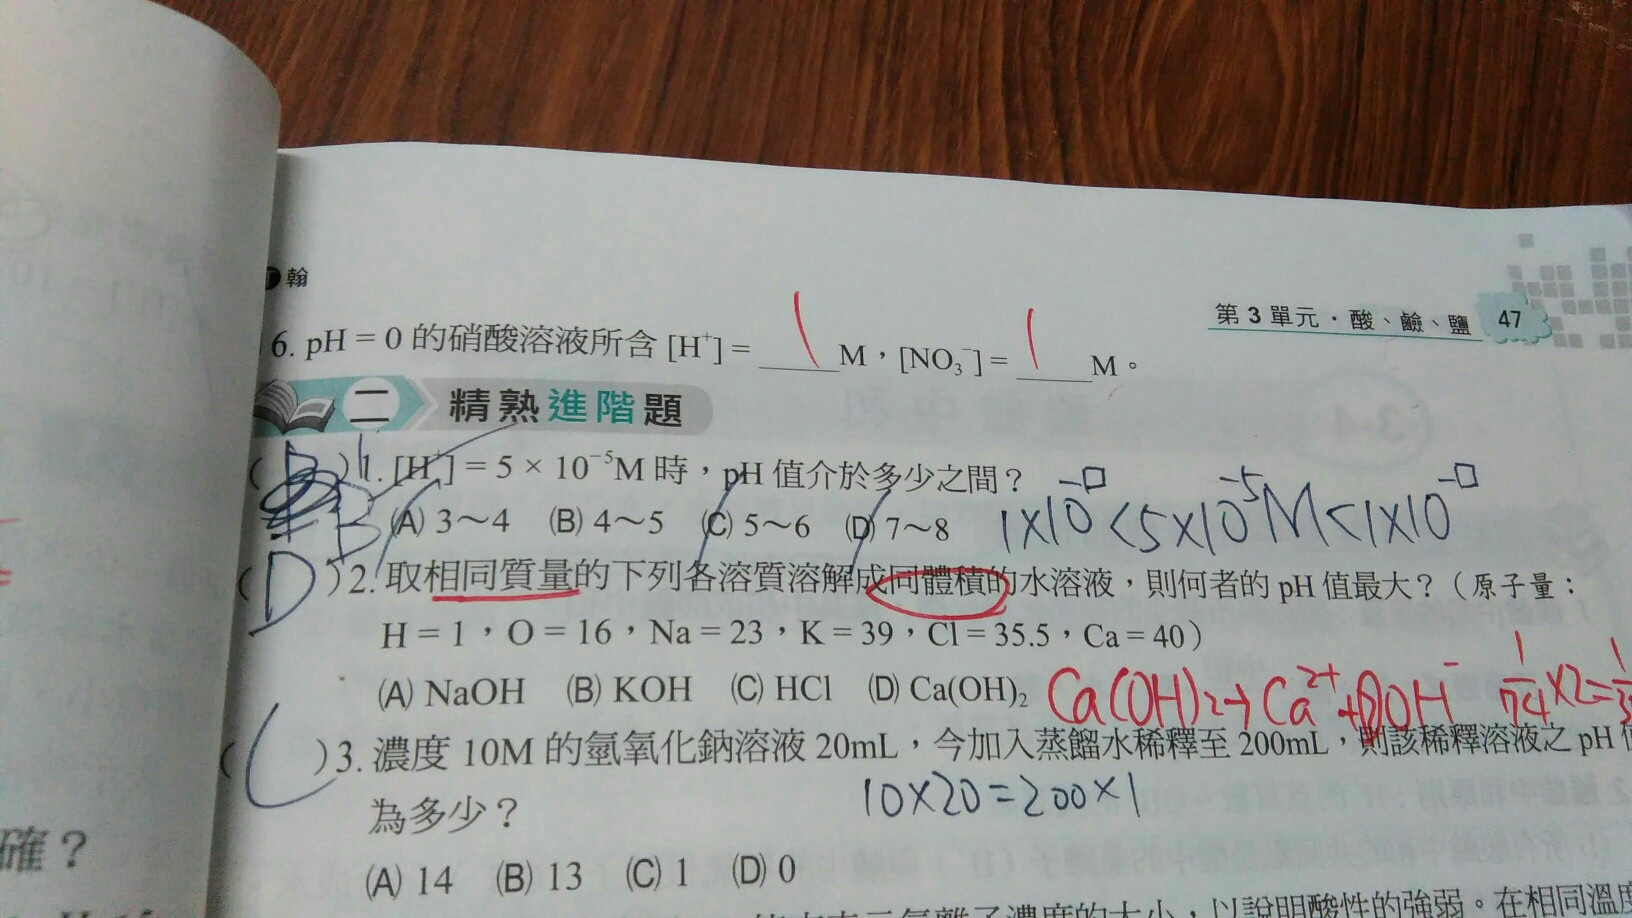 翰
第 3 單元・酸、鹼、鹽 47
6. pH = 0 的硝酸溶液所含 [H⁺] = 1 M，[NO₃⁻] = 1 M。
二 精熟進階題
( B )1. [H⁺] = 5 × 10⁻⁵M 時，pH 值介於多少之間？
(A) 3～4 (B) 4～5 (C) 5～6 (D) 7～8
1×10⁻□ < 5×10⁻⁵M < 1×10⁻□
( D )2. 取相同質量的下列各溶質溶解成同體積的水溶液，則何者的 pH 值最大？（原子量：
H = 1，O = 16，Na = 23，K = 39，Cl = 35.5，Ca = 40）
(A) NaOH (B) KOH (C) HCl (D) Ca(OH)₂
Ca(OH)₂→Ca²⁺+2OH⁻ 1/74×2=
( )3. 濃度 10M 的氫氧化鈉溶液 20mL，今加入蒸餾水稀釋至 200mL，則該稀釋溶液之 pH
為多少？
10×20=200×1
(A) 14 (B) 13 (C) 1 (D) 0
確？
以說明酸性的強弱。在相同溫度